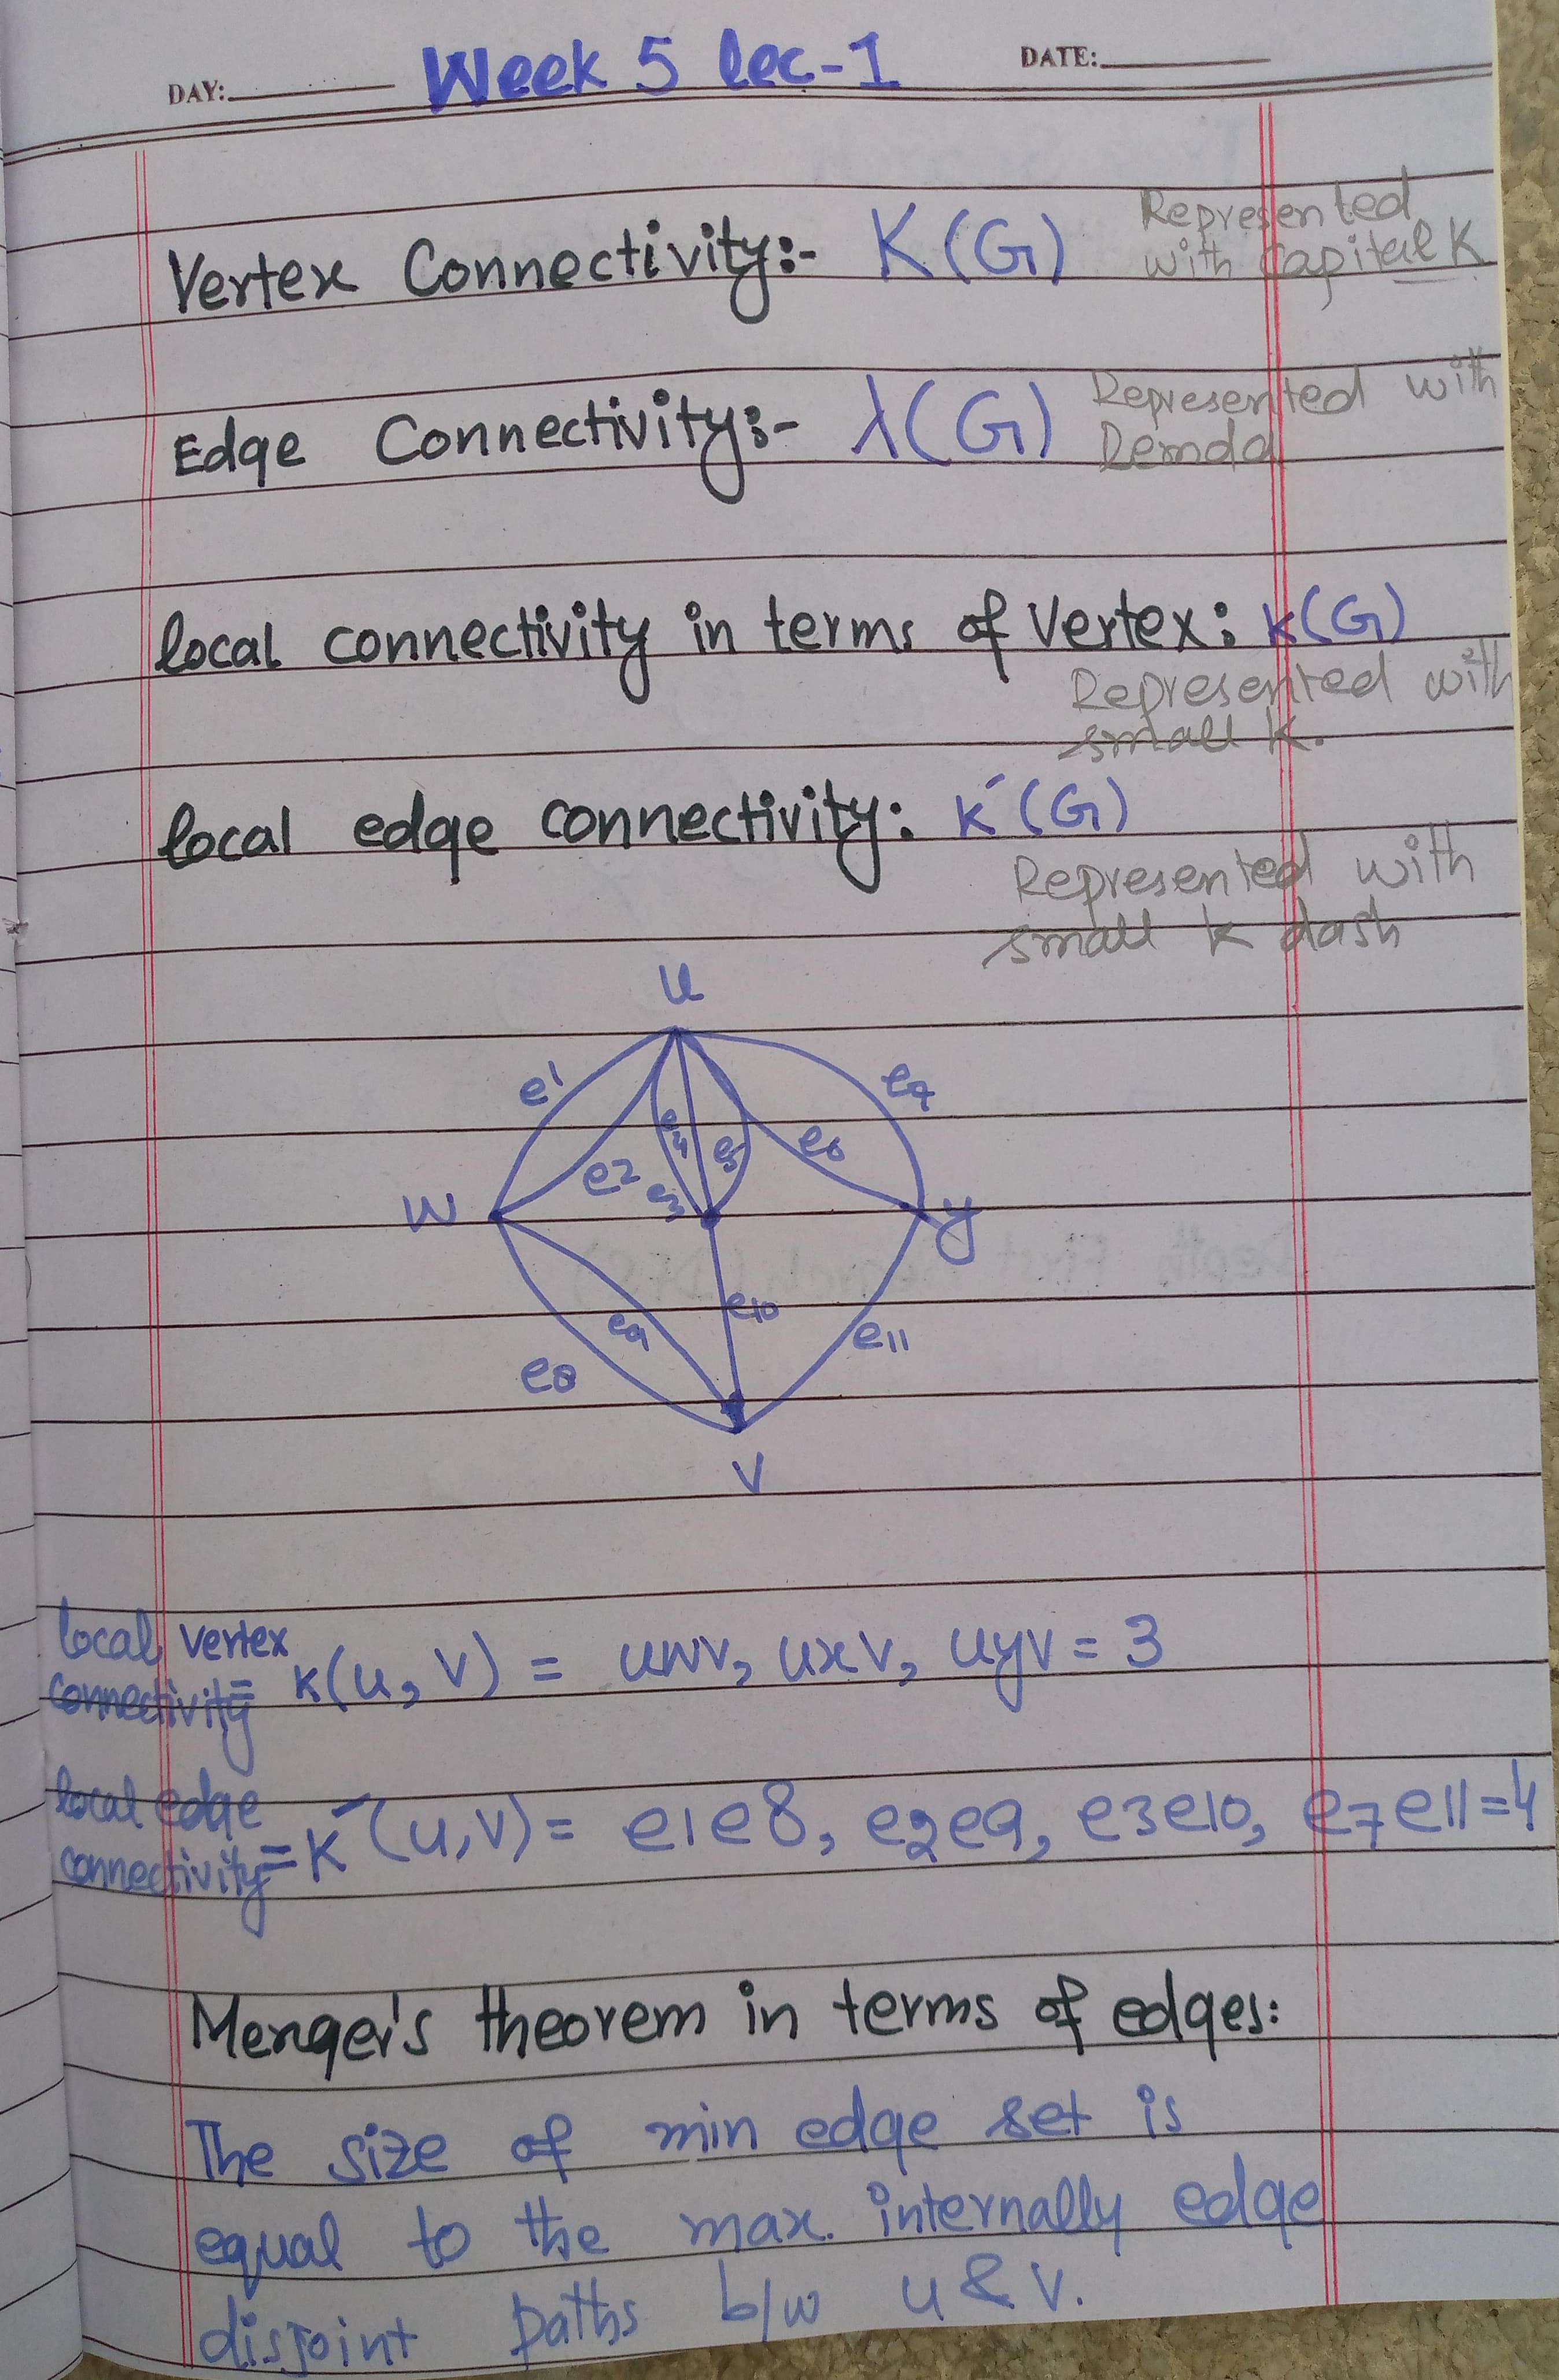 Week 5 lec-1
DAY:
DATE:
Vertex Connectivity:- K(G)
Represented
with Capital K
Edge Connectivity:- λ(G)
Represented with
Lemda
local connectivity in terms of Vertex: k(G)
Represented with
small k.
local edge connectivity: k´(G)
Represented with
small k dash
u
e1
e7
e4
e5
e6
e2
e3
w
y
e10
e9
e11
e8
v
local vertex
connectivity = k(u, v) = uwv, uxv, uyv = 3
local edge
connectivity = k´(u,v) = e1e8, e2e9, e3e10, e7e11 = 4
Menger's theorem in terms of edges:
The size of min edge set is
equal to the max. internally edge
disjoint paths b/w u & v.